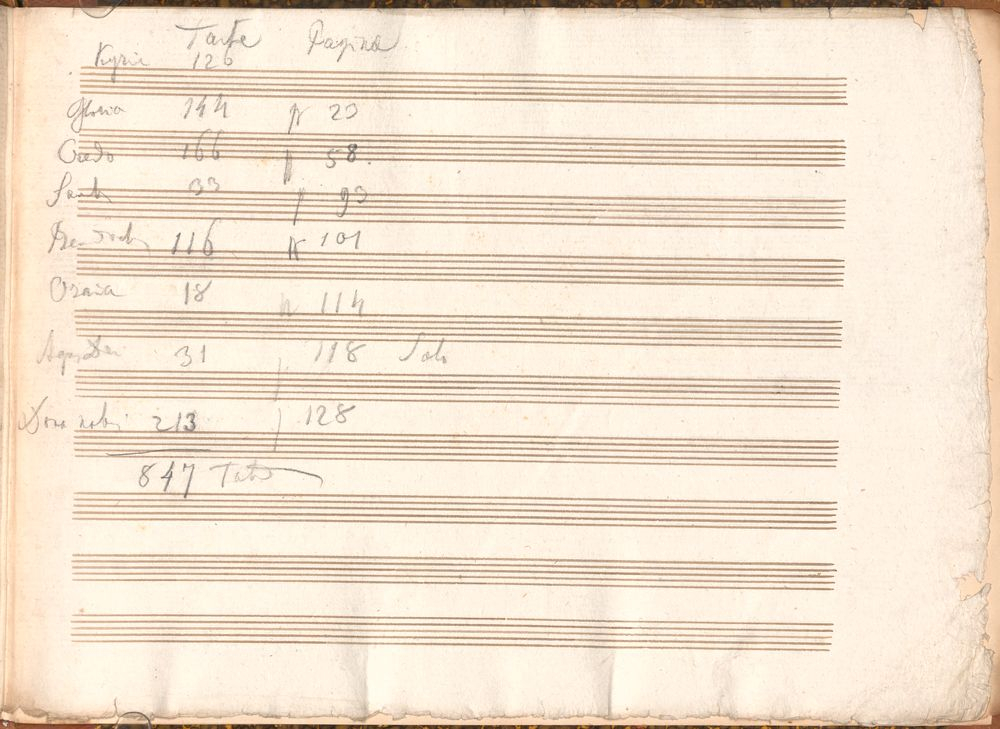 Takte Pagina
Kyrie 126
Gloria 144 p 23
Credo 166 p 58.
Sanct 33 p 93
116 p 101
Osaña 18 p 114
Agnus Dei 31 p 118 Solo
Dona nobis 213 p 128
847 Takte